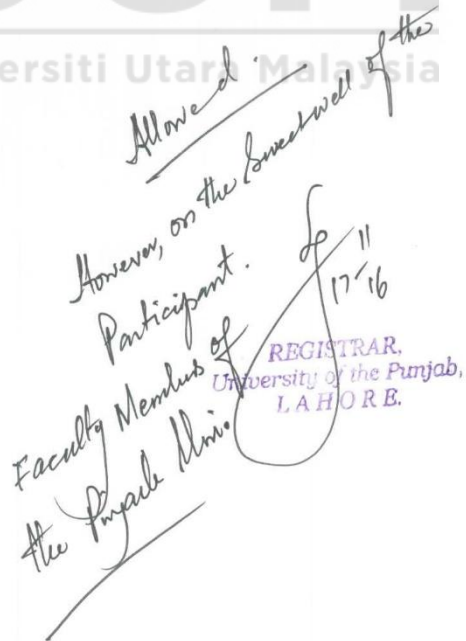 Universiti Utara Malaysia
Allowed.
However, on the Sweet will of the
Participant.
Faculty Members of
the Punjab Univ.
11
17-16
REGISTRAR,
University of the Punjab,
LAHORE.